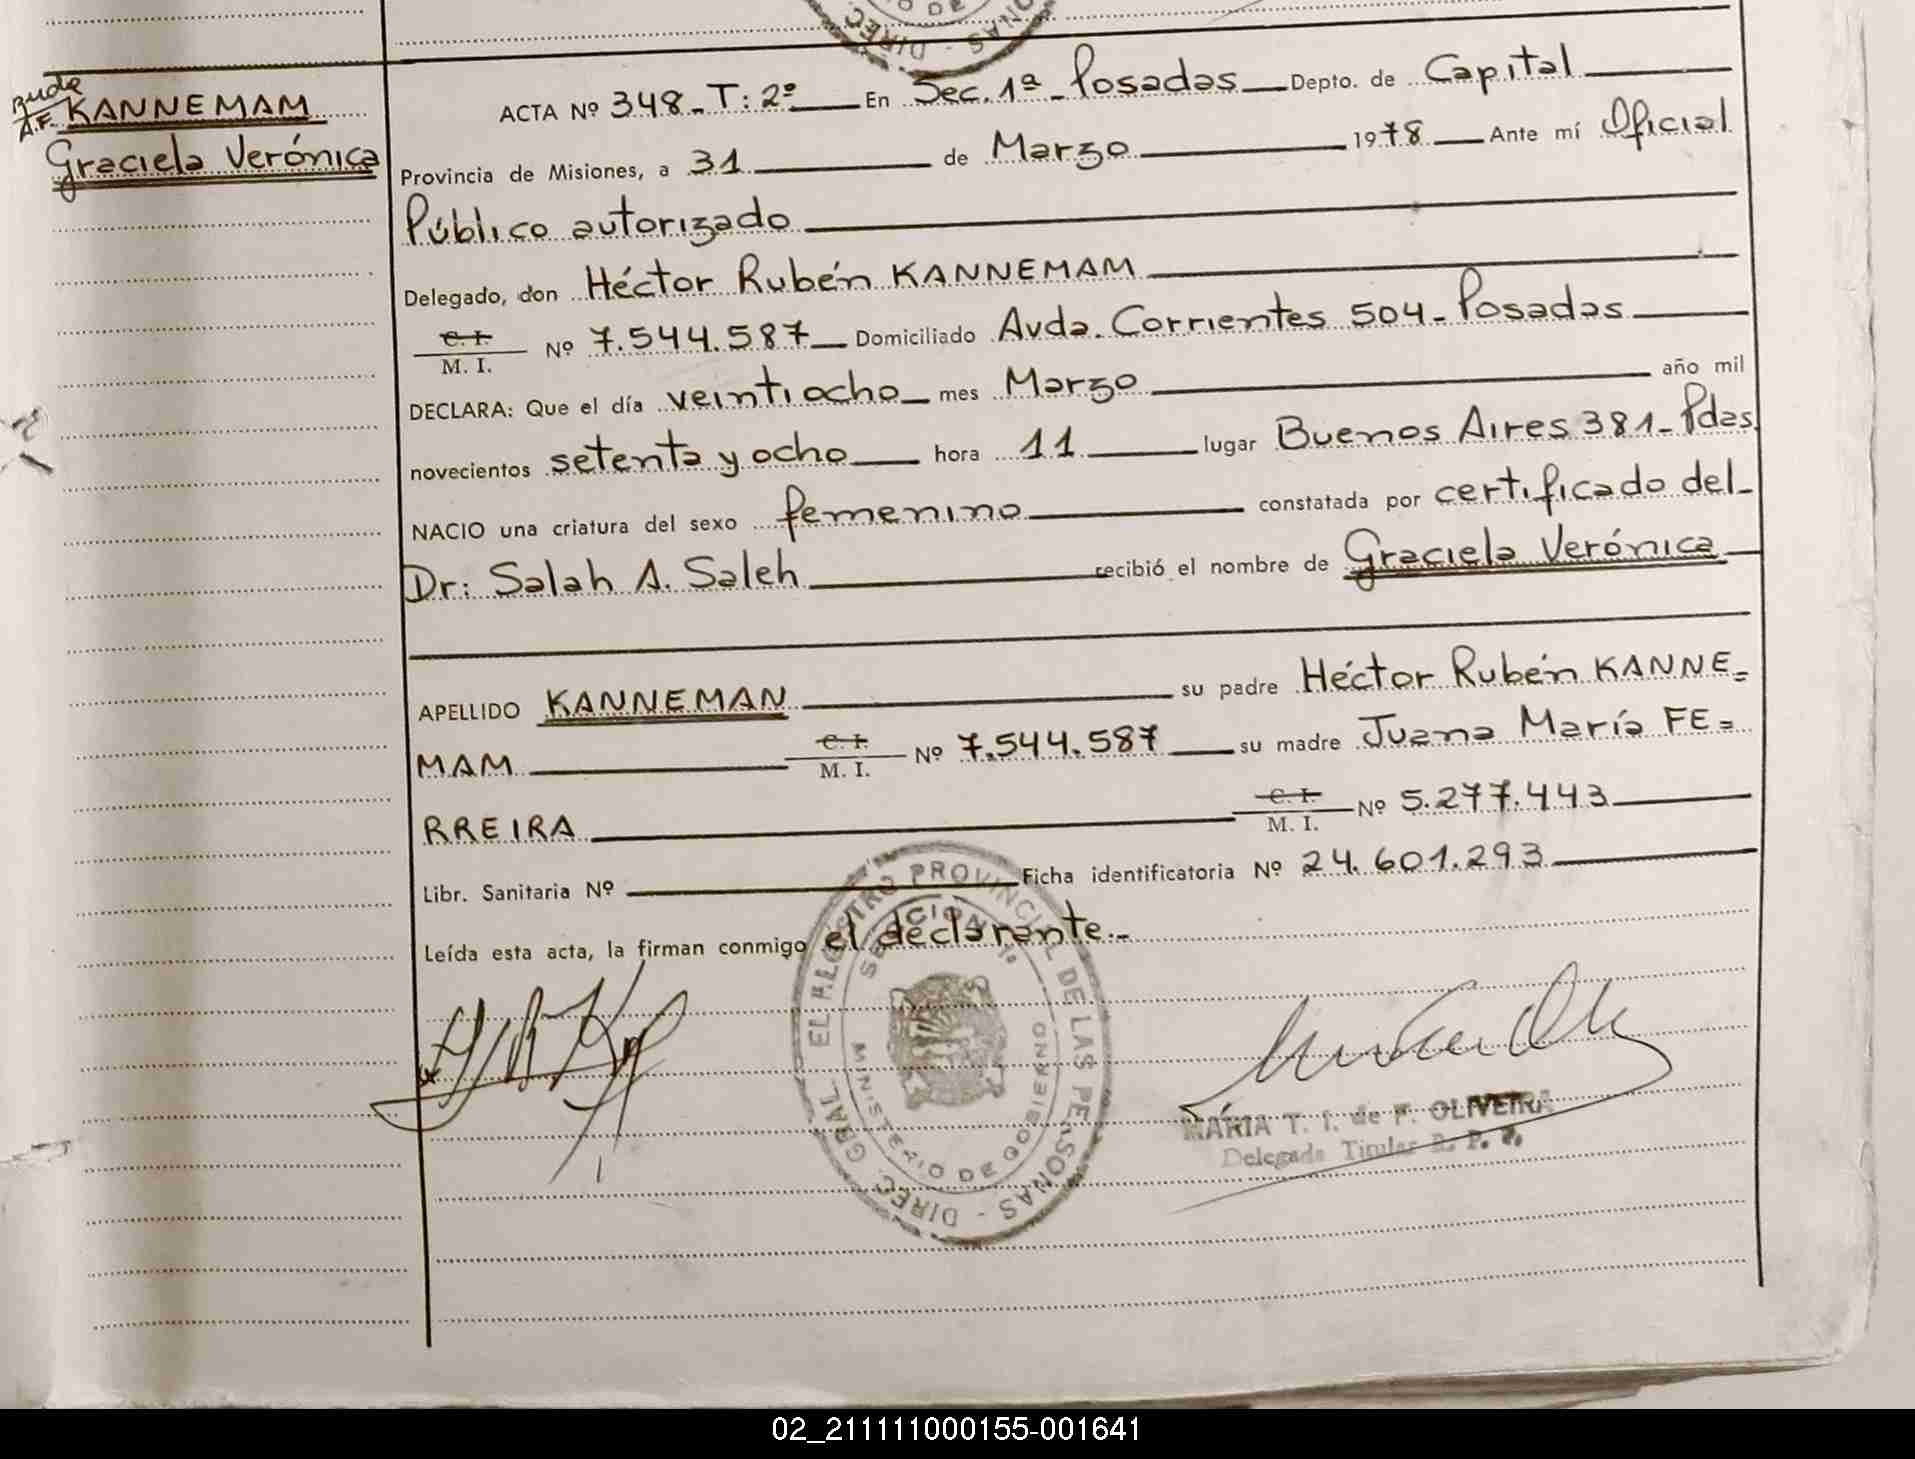 KANNEMAM
Graciela Verónica
ACTA Nº 348_T: 2º En Sec. 1ª_Posadas Depto. de Capital
Provincia de Misiones, a 31 de Marzo 1978 Ante mí Oficial
Público autorizado
Delegado, don Héctor Rubén KANNEMAM
C. I.
M. I. Nº 7.544.587 Domiciliado Avda. Corrientes 504_Posadas
DECLARA: Que el día veintiocho mes Marzo año mil
novecientos setenta y ocho hora 11 lugar Buenos Aires 381_Pdas.
NACIO una criatura del sexo femenino constatada por certificado del
Dr: Salah A. Saleh recibió el nombre de Graciela Verónica
APELLIDO KANNEMAN su padre Héctor Rubén KANNE=
MAM C. I. M. I. Nº 7.544.587 su madre Juana María FE=
RREIRA C. I. M. I. Nº 5.277.443
Libr. Sanitaria Nº Ficha identificatoria Nº 24.601.293
Leída esta acta, la firman conmigo el declarante._
DIREC. GRAL. EL REGISTRO PROVINCIAL DE LAS PERSONAS
SECCION 1ª
MINISTERIO DE GOBIERNO
MARIA T. I. de F. OLIVEIRA
Delegada Titular R. P. P.
02_211111000155-001641